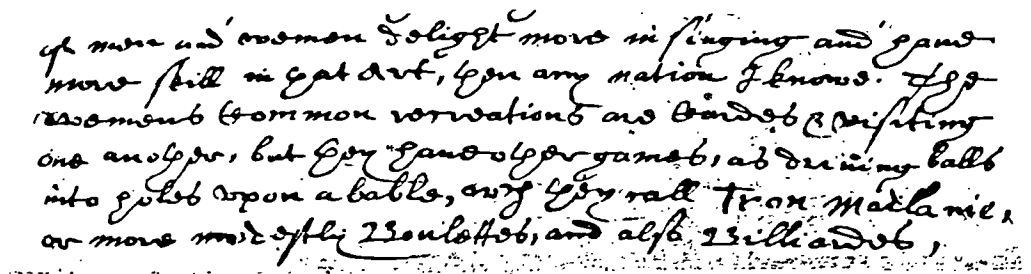 of men and women delight more in singing and have
more skill in that Art, then any nation I knowe. The
womens Common recreations are Cardes & visiting
one another, but they have other games, as driuing balls
into holes vpon a table, wch they call Tron Madame,
or more modestly Boulettes, and also Billiardes,